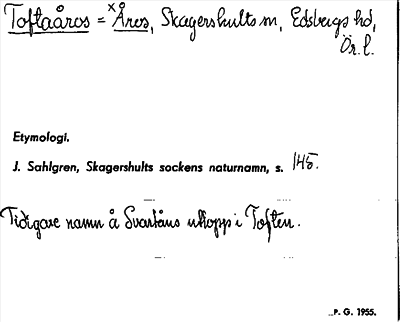 Toftaåros = ˣÅros, Skagershults sn, Edsbergs hd,
Ör. l.
Etymologi.
J. Sahlgren, Skagershults sockens naturnamn, s. 145.
Tidigare namn å Svartåns utlopp i Toften.
P. G. 1955.